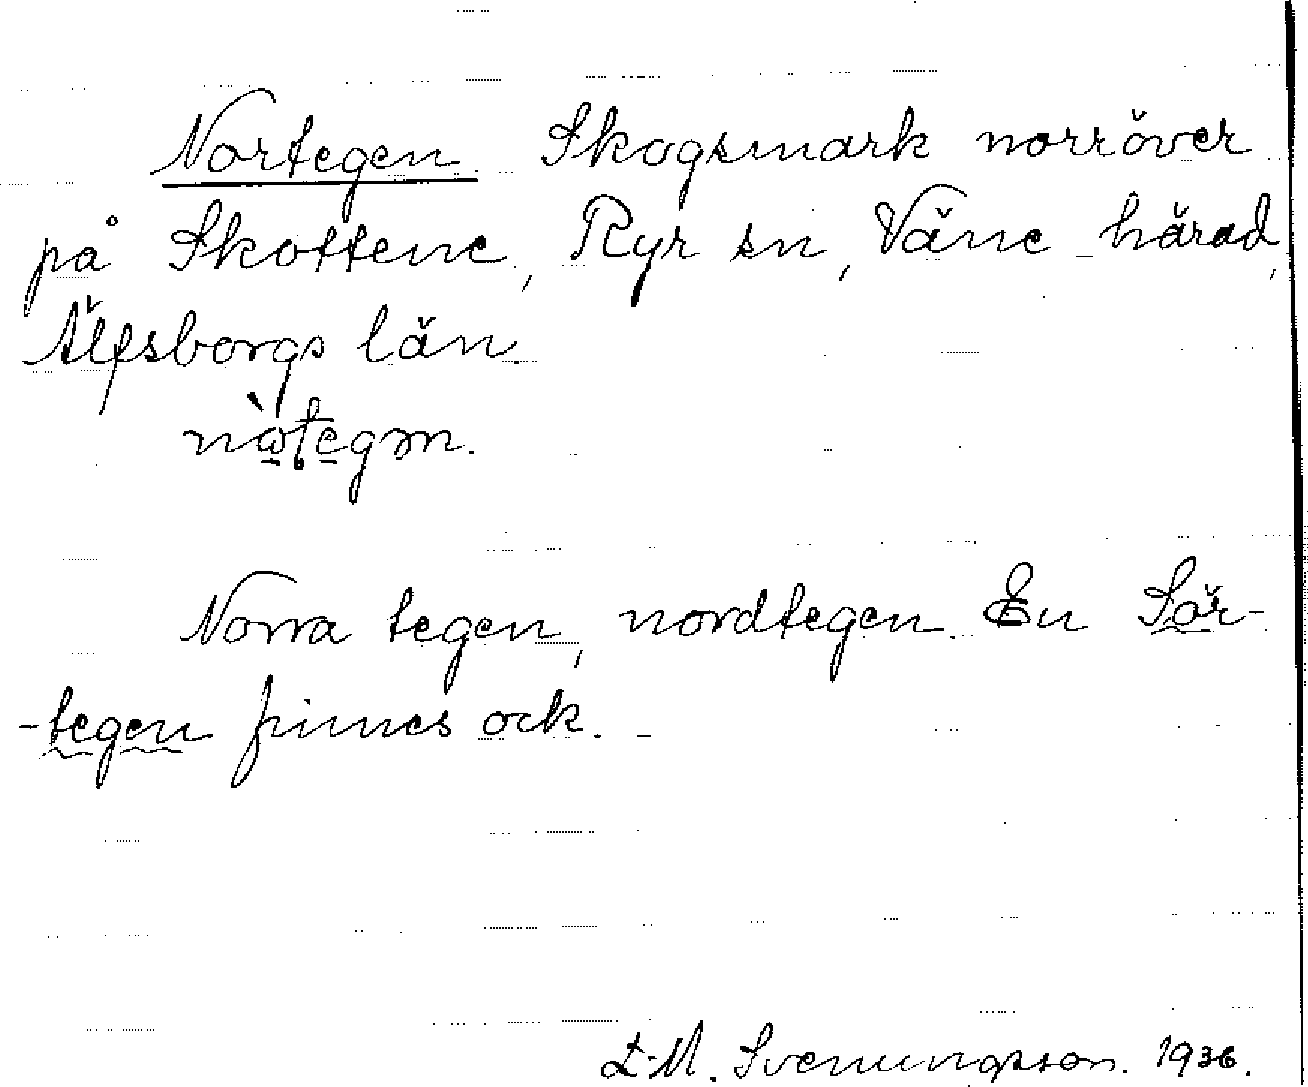 Nortegen. Skogsmark norröver
på Skottene, Ryr sn, Väne härad,
Älfsborgs län.
Norra tegen, nordtegen. En Sör-
-tegen finnes ock. -
Svenungsson. 1936.